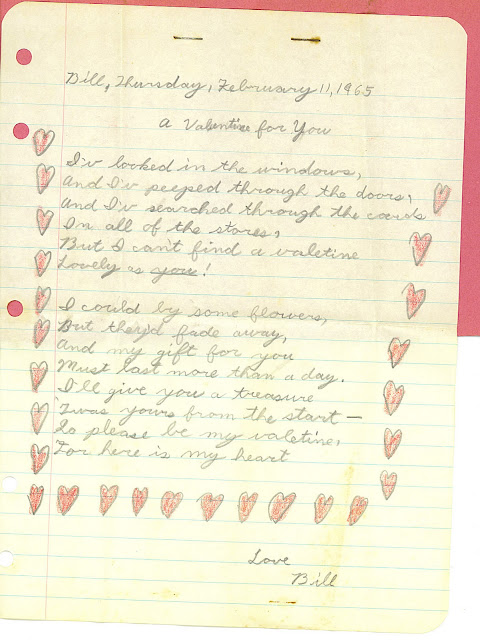 Bill, Thursday, February 11, 1965
A Valentine for You
I'v looked in the windows,
And I'v peeped through the doors,
And I'v searched through the cards
In all of the stores,
But I can't find a valetine
Lovely as you!
I could by some flowers,
But they'd fade away,
And my gift for you
Must last more than a day.
I'll give you a treasure
'Twas yours from the start —
So please be my valetine,
For here is my heart
Love
Bill